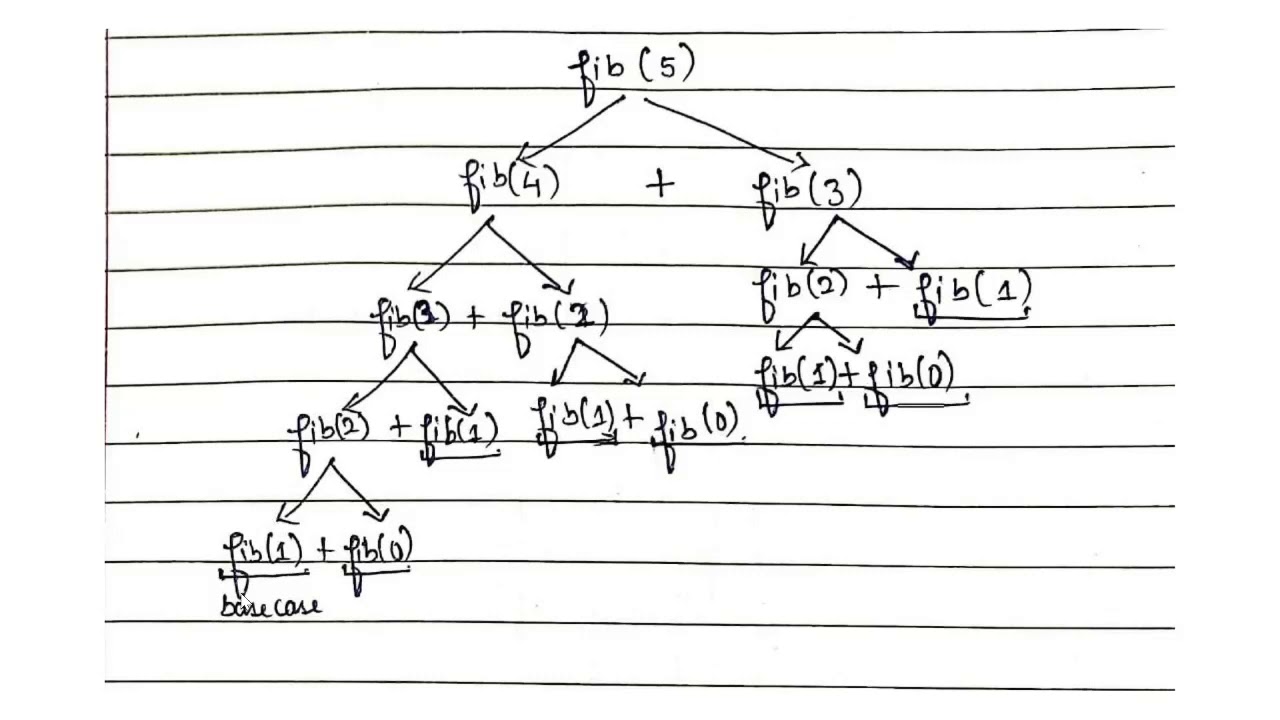 fib (5)
fib(4) + fib(3)
fib(2) + fib(1)
fib(3) + fib(2)
fib(1) + fib(0)
fib(2) + fib(1) fib(1) + fib(0)
fib(1) + fib(0)
base case